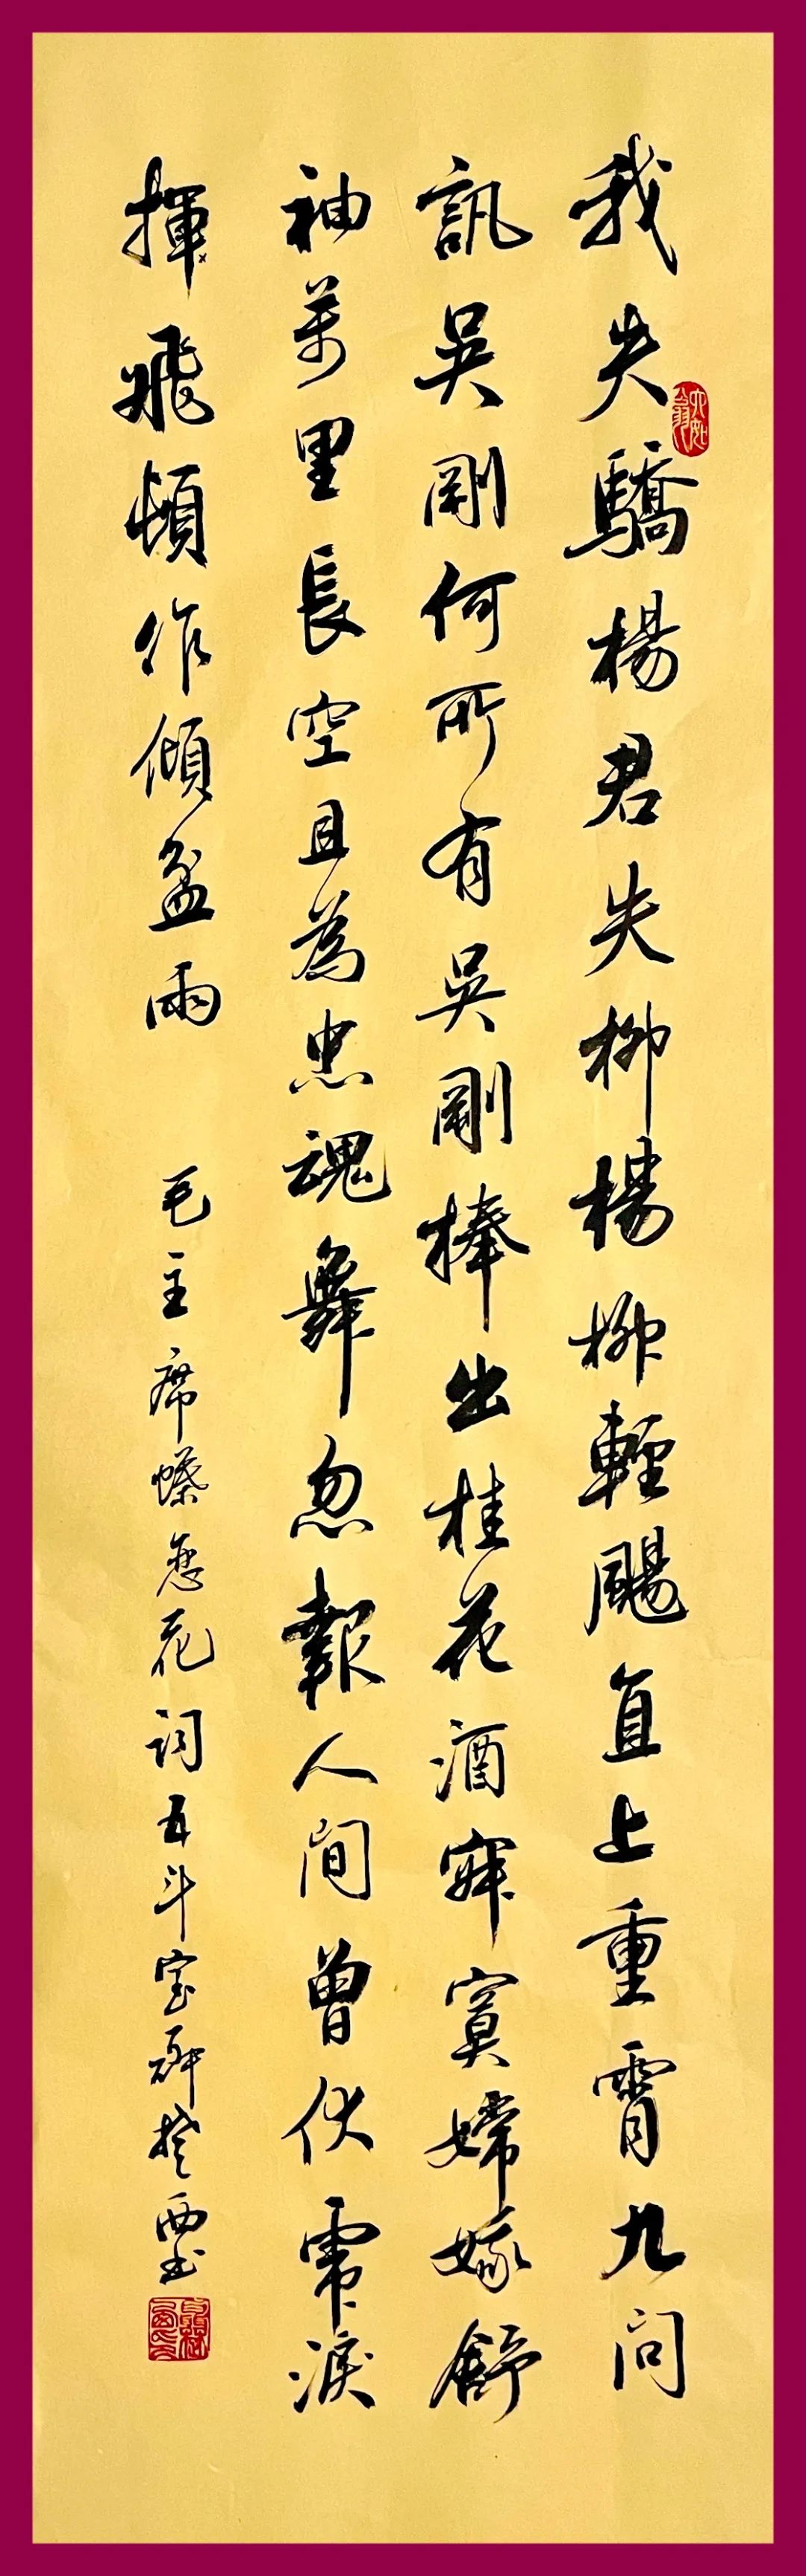 我失驕楊君失柳楊柳輕颺直上重霄九問
訊吳剛何所有吳剛捧出桂花酒寂寞嫦娥舒
袖萬里長空且為忠魂舞忽報人間曾伏虎淚
揮飛頓作傾盆雨 毛主席蝶恋花词五斗室